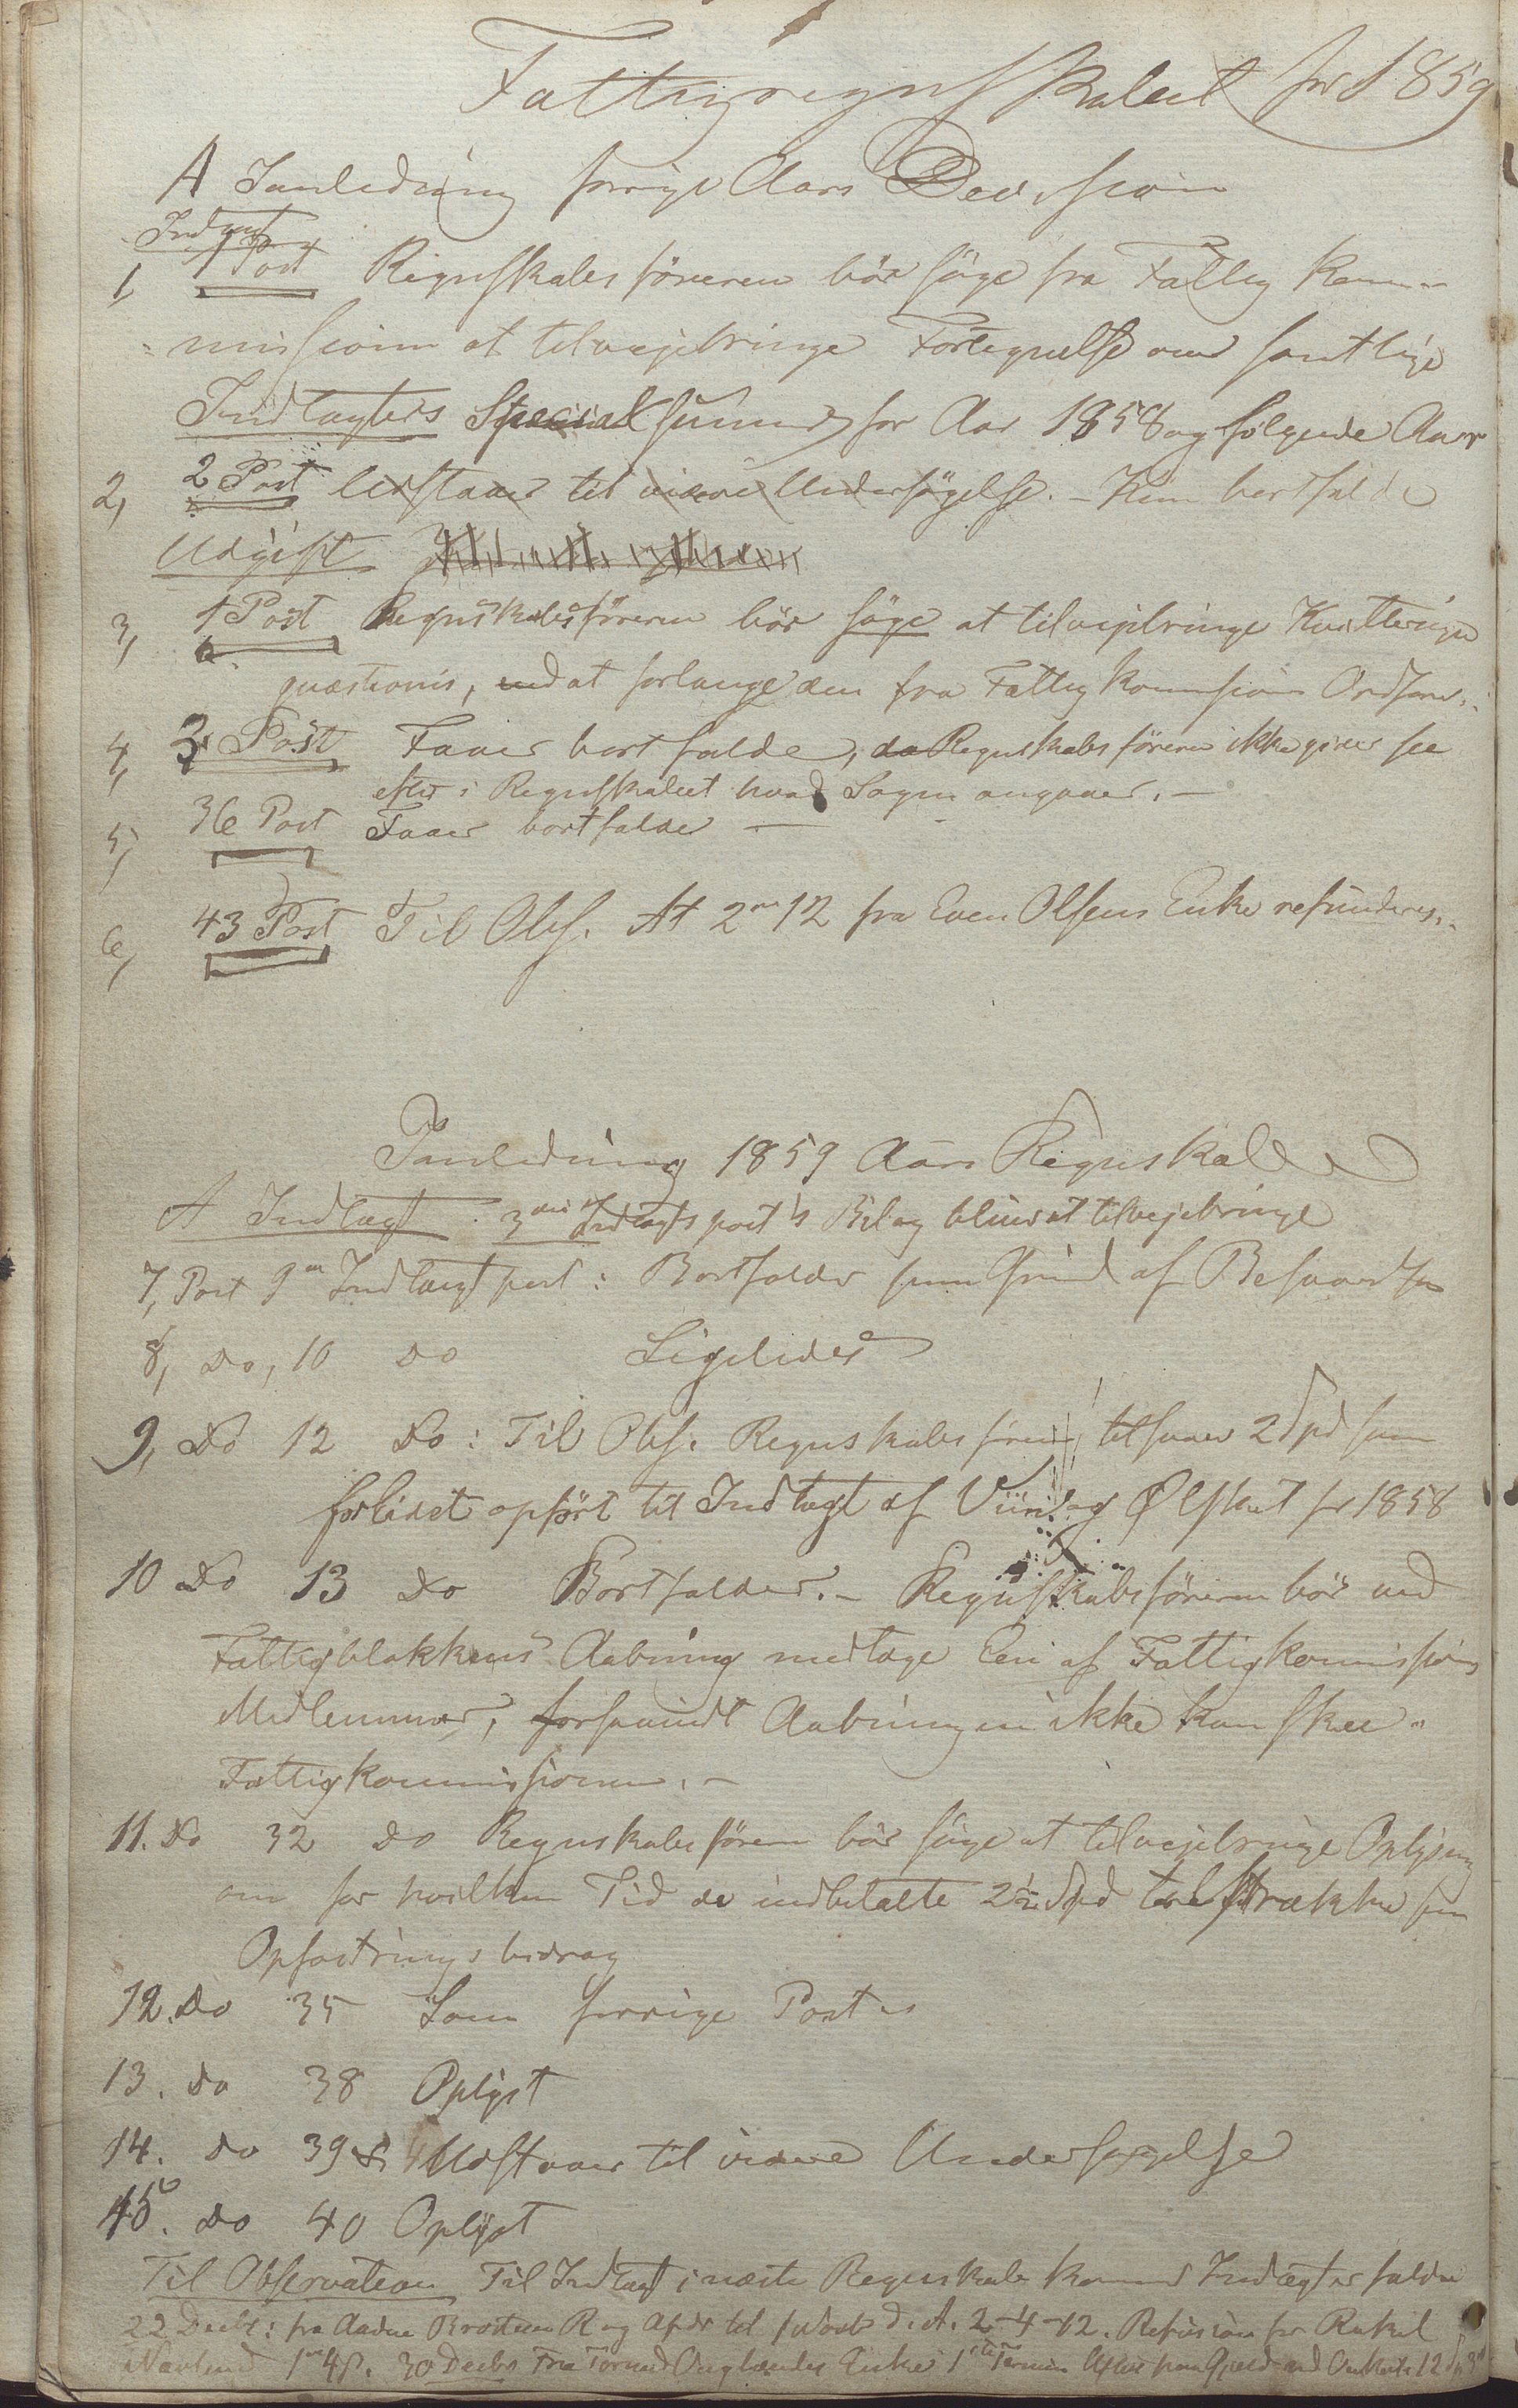 Fattigregnskabet for 1859
A Ianledning forrige Aars Decission
Indtægt
1, 1 Post Regnskabsföreren bör söge fra Fattig Kom-
missionen at tilvejebringe Fortegnelse over samtlige
Indtægters Special summer for Aar 1858 og følgende Aar
2, 2 Post Udstaaer til videre Undersögelse. - Kan bortfalde
Udgift
3, 1 Post Regnskabsföreren bör söge at tilvejebringe Kvittering
quæstionis, ved at forlange den fra Fattigkommissions Ordfører
4, 3 Post Faaer bortfalde, da Regnskabsföreren ikke giver see
efter i Regnskabet hvad Sagen angaaer. -
5, 36 Post Faaer bortfalde -
6, 43 Post Til Obs. At 2 12 fra Even Olsens Enke refunderes.
Ianledning 1859 Aars Regnskab
A Indtægt 3die Indtægtspost's Bilag bliver at tilvejebringe
7, Post 9 Indtægtspost: Bortfalder som Grund af Besvarelsen
8, Do, 10 Do Ligeledes
9, Do 12 Do: Til Obs. Regnskabsføreren tilsvarer 2 Spd som
forlidet opført til Indtægt af Viin og Ølskat for 1858
10 Do 13 Do Bortfalder. - Regnskabsföreren bör ved
Fattigblokkens Aabning medtage Een af Fattigkommissions
Medlemmer, forsaavidt Aabningen ikke kan skee
Fattigkommissionen. -
11. Do 32 Do Regnskabsföreren bör söge at tilvejebringe Oplysning
om for hvilken Tid de indbetalte 2½ Spd tilstrække som
Opfostringsbidrag
12. Do 35 Som forrige Post
13. Do 38 Oplyst
14. Do 39 Udstaaer til videre Undersøgelse
15. Do 40 Oplyst
Til Observation Til Indtægt i næste Regnskab kommer Indtægter
22 Decbr: fra Aadne 2-4-12. Refusion for Rakel
30 Decbr Fra Enke 1ste Termin 12